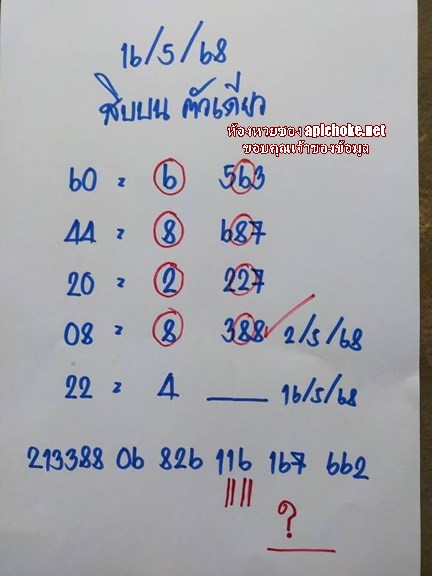 16/5/68
สิบบน ตัวเดียว
ห้องหวยซอง apichoke.net
ขอบคุณเจ้าของข้อมูล
60 = 6 563
44 = 8 687
20 = 2 227
08 = 8 388 2/5/68
22 = 4 ___ 16/5/68
213388 06 826 116 167 662
?